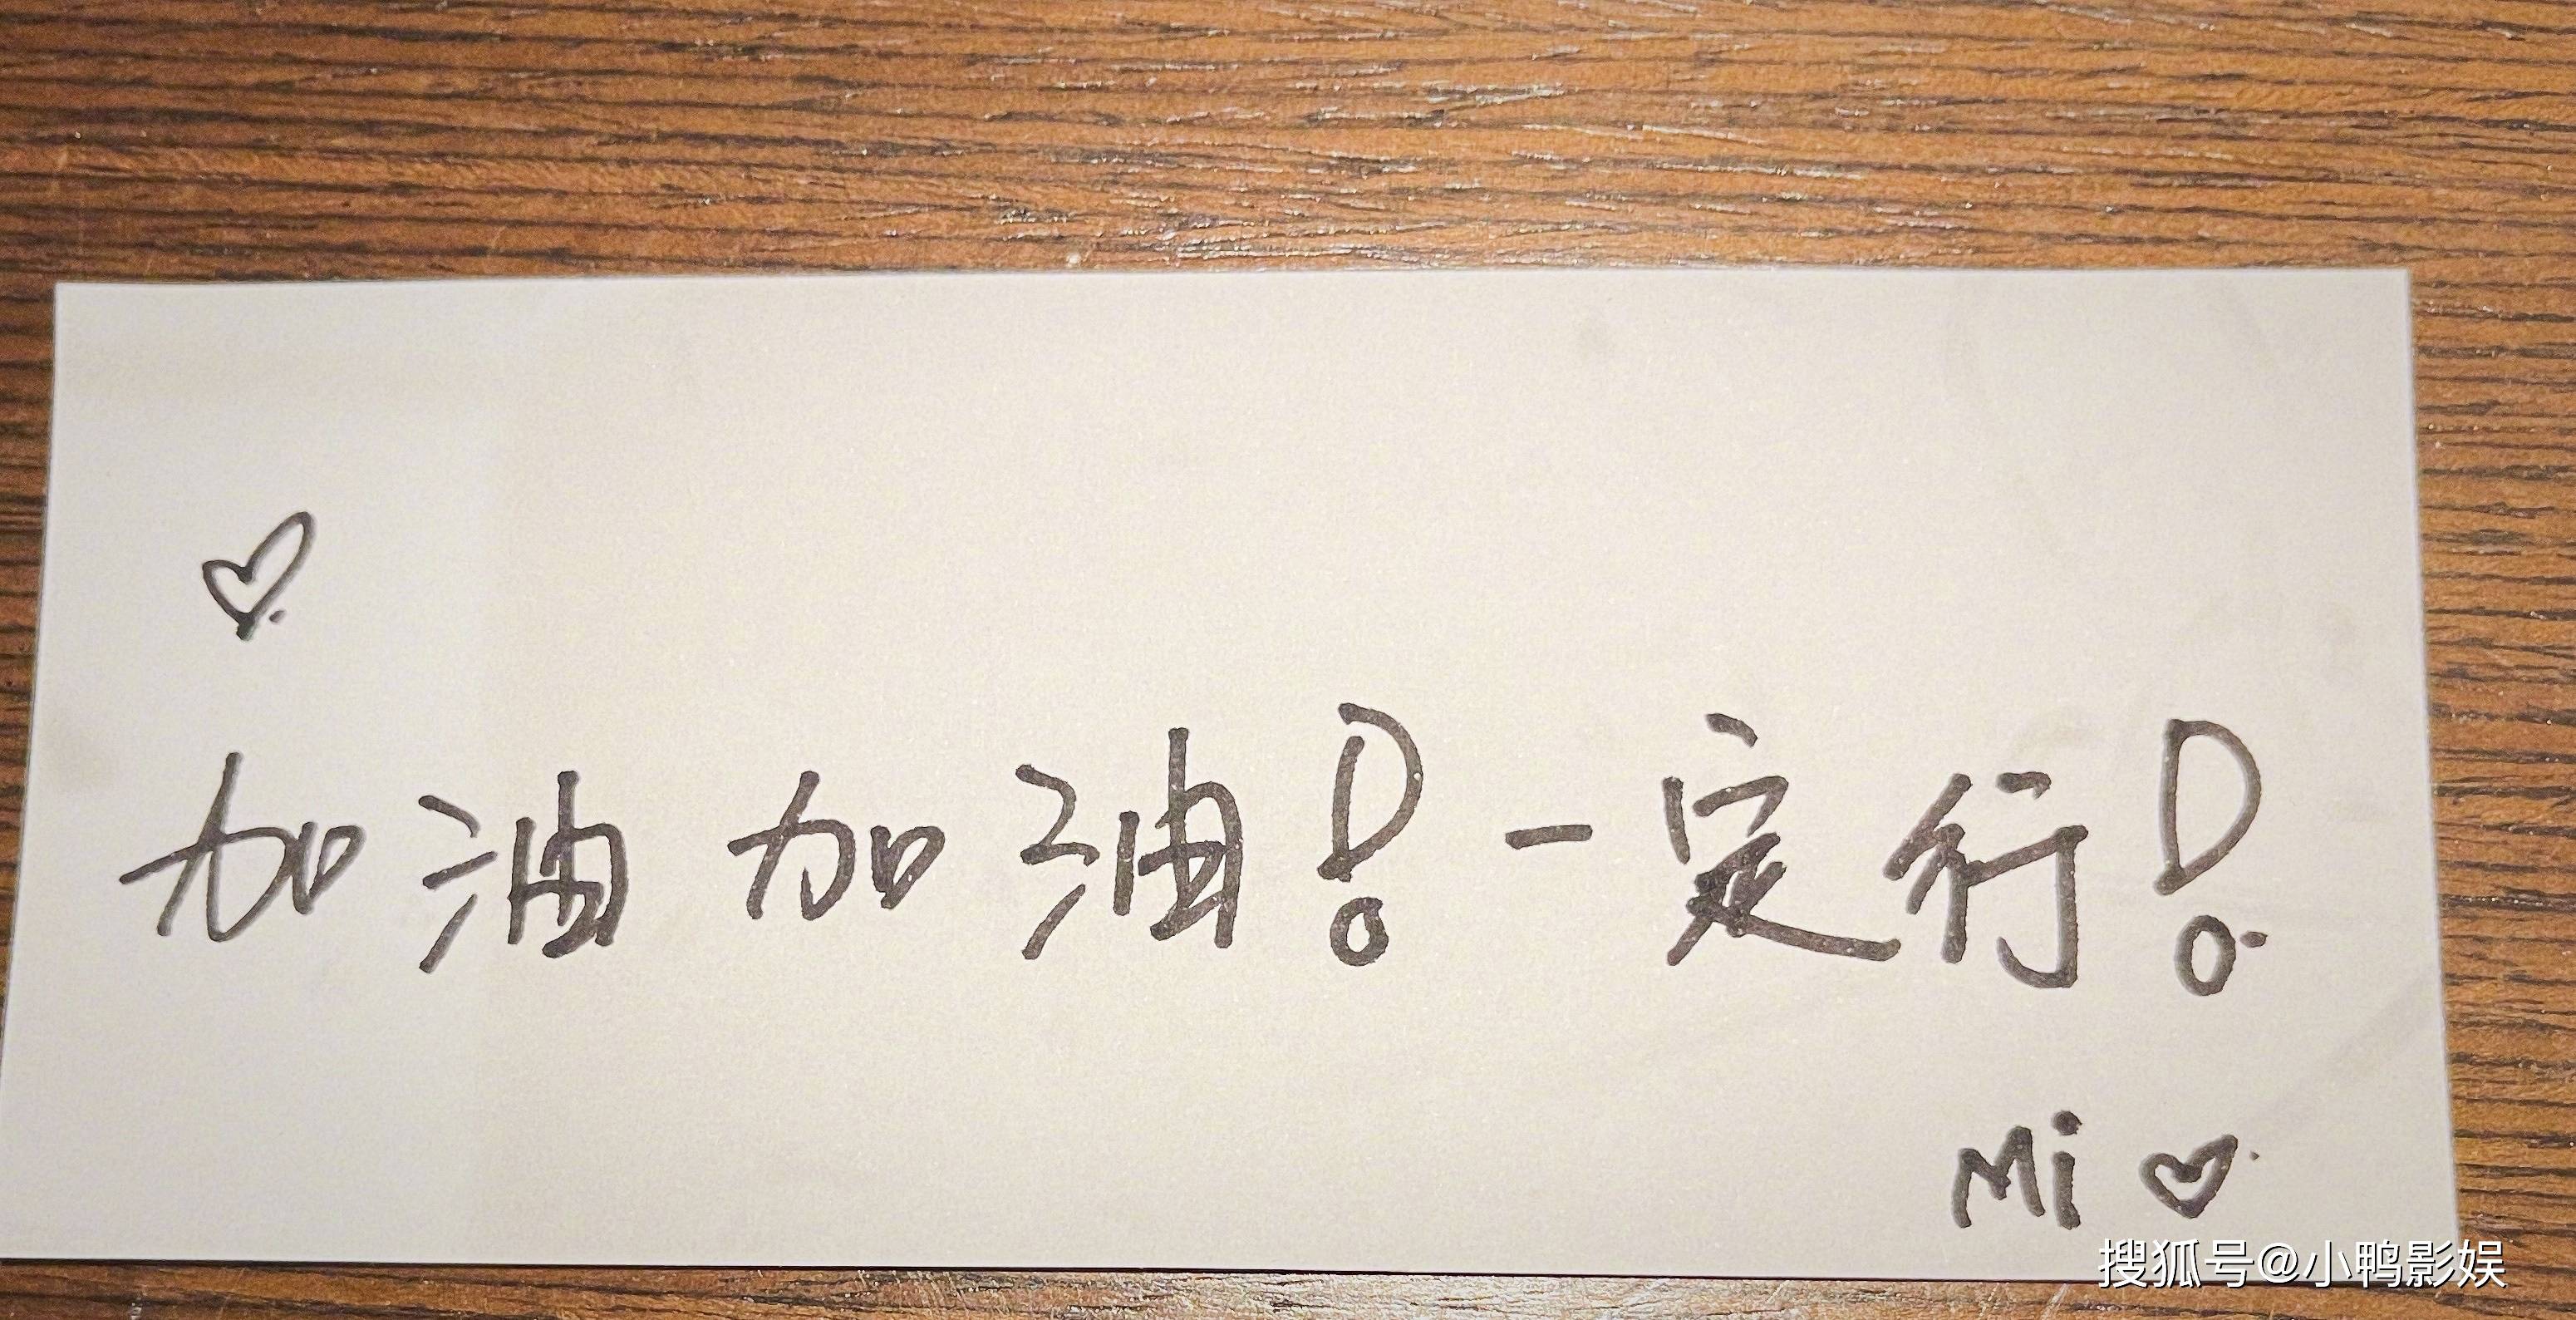 ♡
加油 加油!一定行!
Mi ♡
搜狐号@小鸭影娱